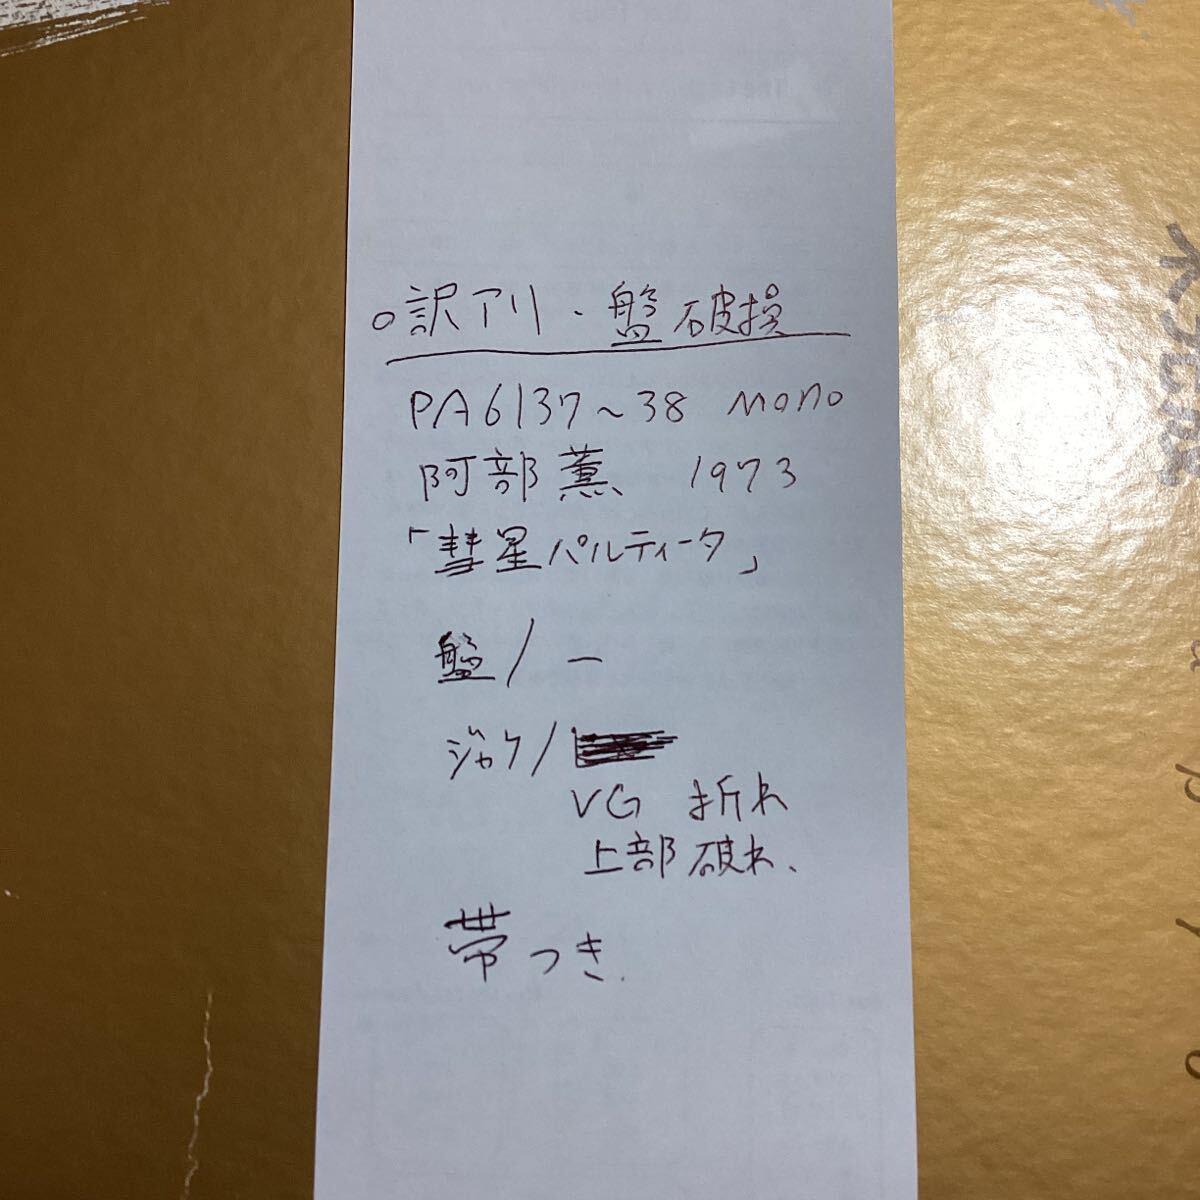 ○訳アリ・盤破損
PA6137~38 MONO
阿部薫 1973
「彗星パルティータ」
盤/ー
ジャケ/
VG 折れ
上部破れ、
帯つき.